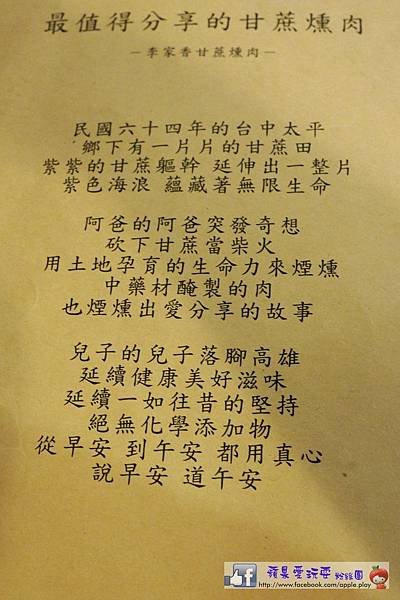 最值得分享的甘蔗燻肉
—李家香甘蔗燻肉—
民國六十四年的台中太平
鄉下有一片片的甘蔗田
紫紫的甘蔗軀幹 延伸出一整片
紫色海浪 蘊藏著無限生命
阿爸的阿爸突發奇想
砍下甘蔗當柴火
用土地孕育的生命力來煙燻
中藥材醃製的肉
也煙燻出愛分享的故事
兒子的兒子落腳高雄
延續健康美好滋味
延續一如往昔的堅持
絕無化學添加物
從早安 到午安 都用真心
說早安 道午安
蘋果愛玩耍 粉絲團
https://www.facebook.com/apple.play